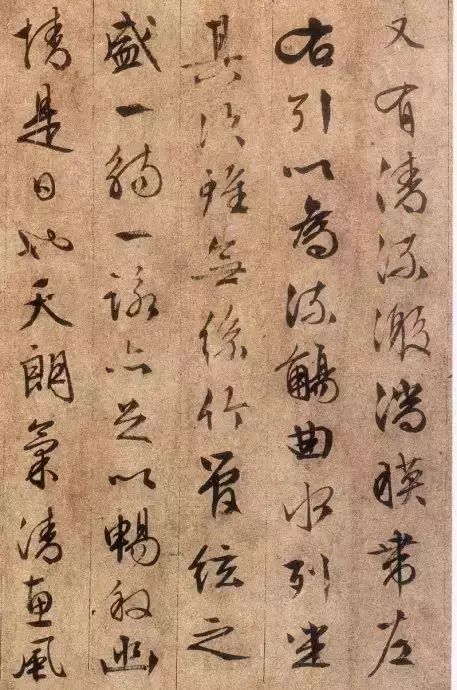 又有清流激湍映帶左
右引以為流觴曲水列坐
其次雖無絲竹管絃之
盛一觴一詠亦足以暢敘幽
情是日也天朗氣清惠風